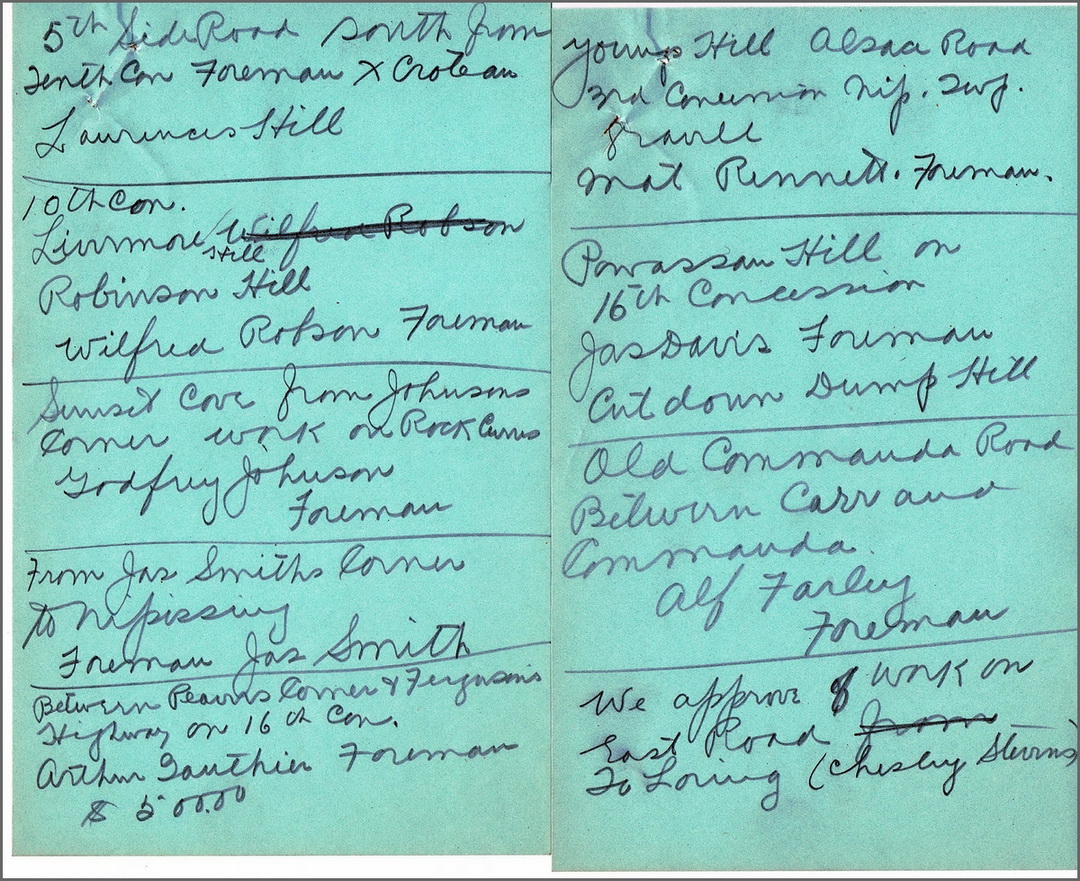 5th Side Road south from
Tenth Con Foreman X Croteau
Laurences Hill
10th Con.
Livermore Hill Wilfred Robson
Robinson Hill
Wilfred Robson Foreman
Sunset Cove from Johnsons
Corner work on Rock Curves
Godfrey Johnson
Foreman
From Jas Smiths Corner
to Nipissing
Foreman Jas Smith
Between Peavrs Corner & Fergusons
Highway on 16th Con.
Arthur Gauthier Foreman
$ 500.00
Youngs Hill Alsace Road
3rd Concession Nip. Twp.
Gravell
Mat Rennett. Foreman.
Powassan Hill on
16th Concession
Jas Davis Foreman
Cut down Dump Hill
Old Commanda Road
Between Carr and
Commanda.
Alf Farley
Foreman
We approve of work on
East Road from
To Loring (Chesley Stevens)